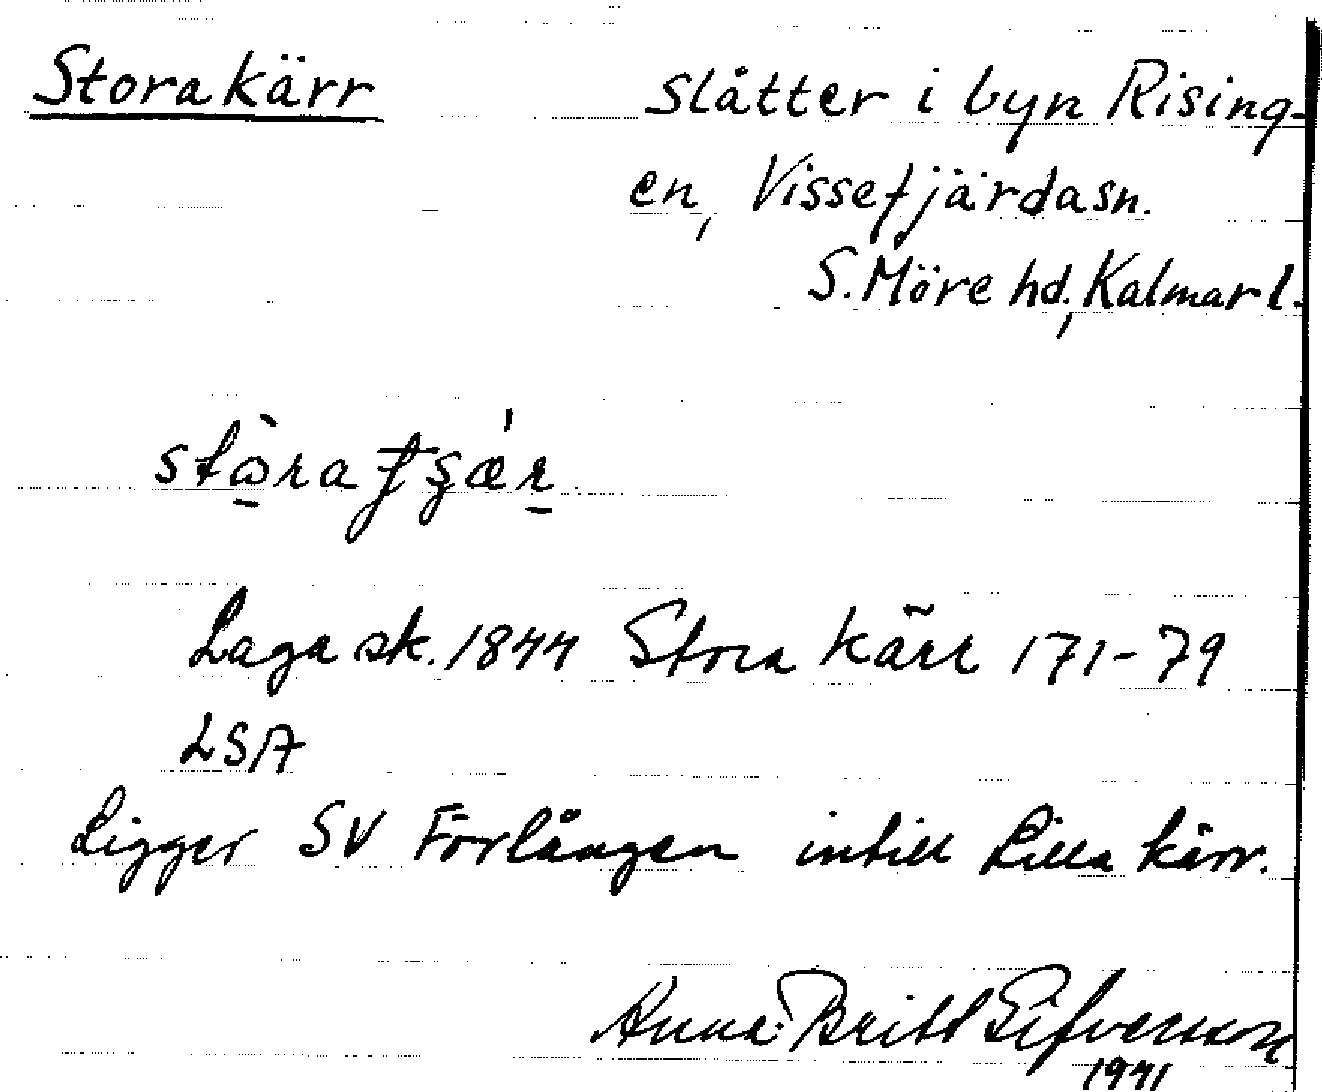 Stora kärr
slåtter i byn Rising-
en, Vissefjärda sn.
S. Möre hd, Kalmar l.
Laga sk. 1844 Stora kärr 171-79
LSA
Ligger SV Förlången intill Lilla kärr.
Anna-Britt Sifversson
1971